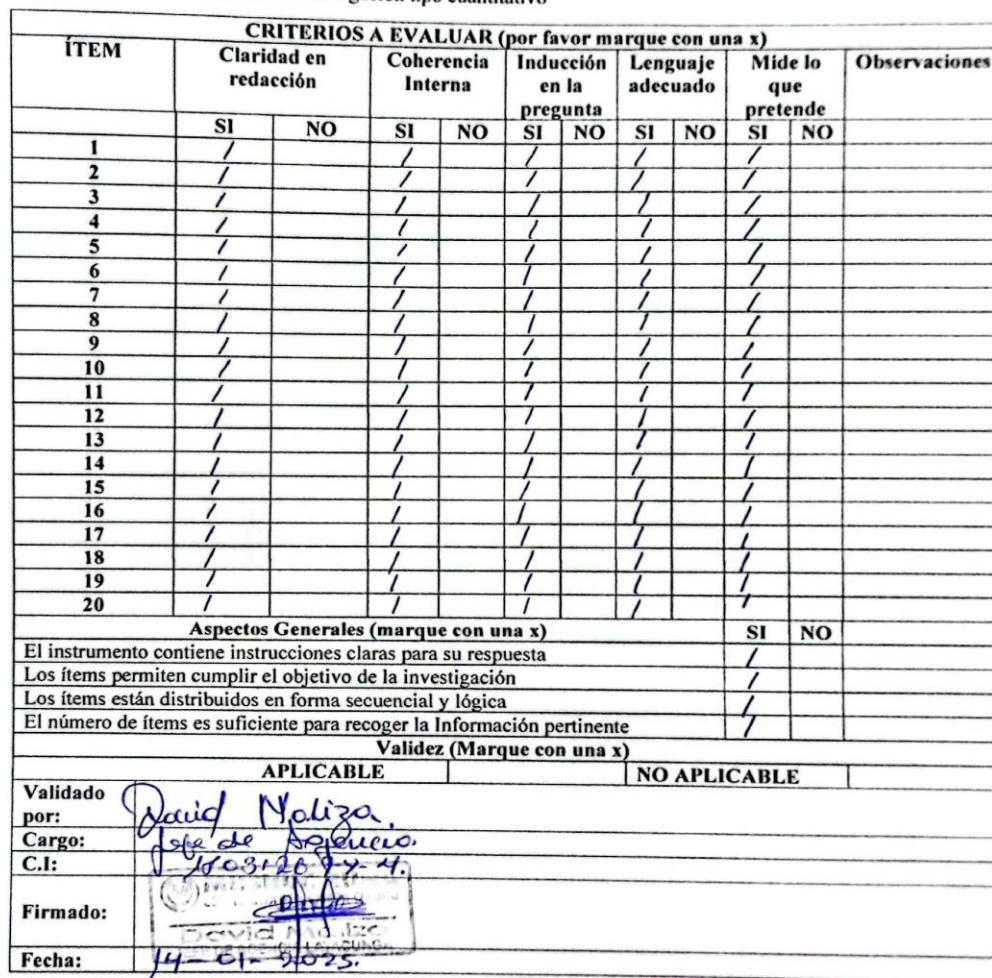 tipo cuantitativo
CRITERIOS A EVALUAR (por favor marque con una x)
ÍTEM Claridad en redacción Coherencia Interna Inducción en la pregunta Lenguaje adecuado Mide lo que pretende Observaciones
SI NO SI NO SI NO SI NO SI NO
1 / / / / /
2 / / / / /
3 / / / / /
4 / / / / /
5 / / / / /
6 / / / / /
7 / / / / /
8 / / / / /
9 / / / / /
10 / / / / /
11 / / / / /
12 / / / / /
13 / / / / /
14 / / / / /
15 / / / / /
16 / / / / /
17 / / / / /
18 / / / / /
19 / / / / /
20 / / / / /
Aspectos Generales (marque con una x) SI NO
El instrumento contiene instrucciones claras para su respuesta /
Los ítems permiten cumplir el objetivo de la investigación /
Los ítems están distribuidos en forma secuencial y lógica /
El número de ítems es suficiente para recoger la Información pertinente /
Validez (Marque con una x)
APLICABLE NO APLICABLE
Validado por: David Maliza.
Cargo: Jefe de Agencia.
C.I:
Firmado:
David Maliza
Fecha: 14-01-2025.